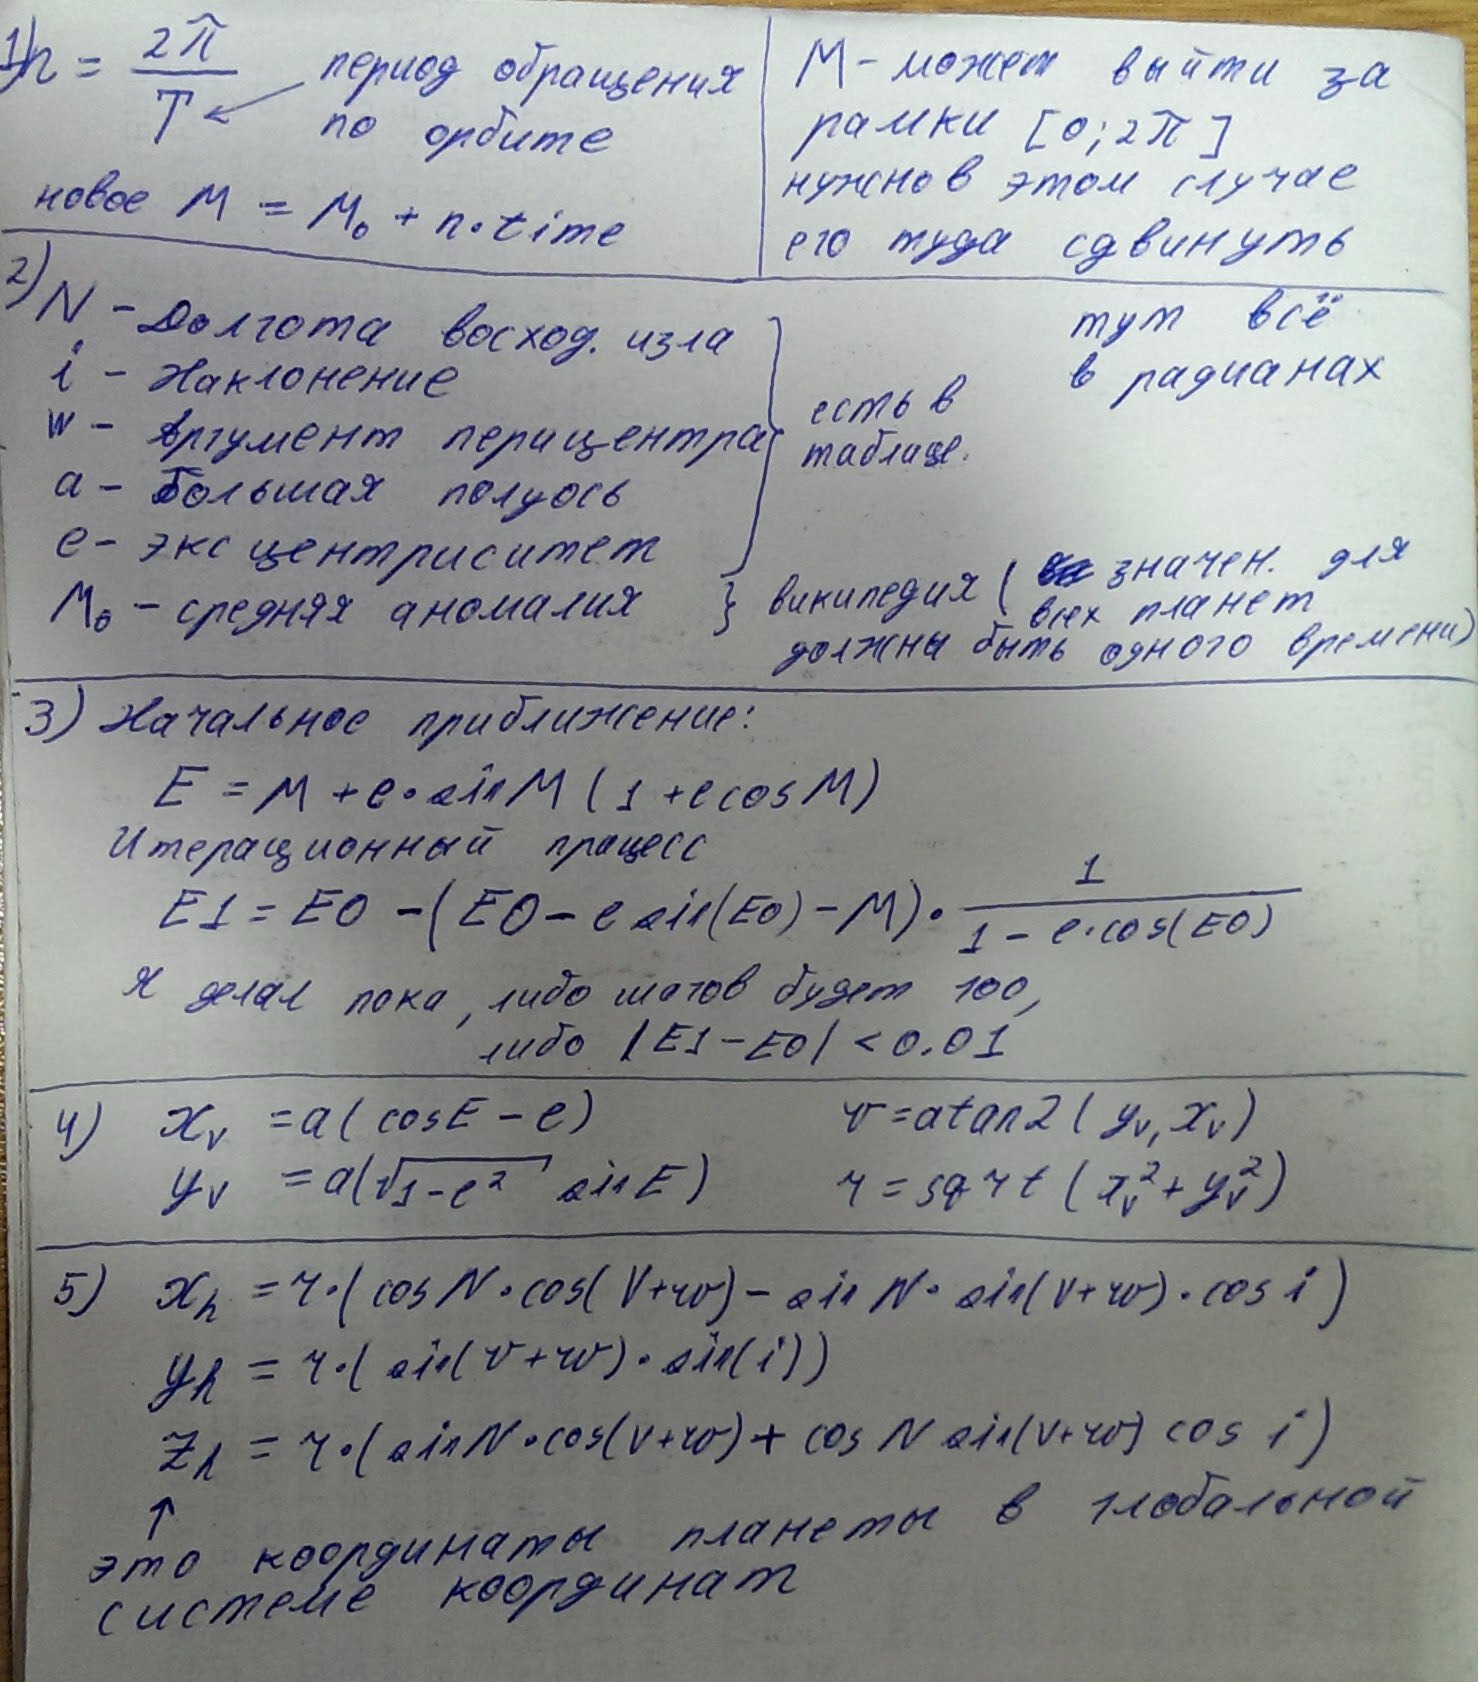 1) n = 2π / T ← период обращения
по орбите
новое M = M₀ + n·time
M - может выйти за
рамки [0; 2π]
нужно в этом случае
его туда сдвинуть
2) N - Долгота восход. узла
i - Наклонение
w - Аргумент перицентра
a - Большая полуось
e - эксцентриситет
есть в
таблице.
тут всё
в радианах
M₀ - средняя аномалия } википедия ( значен. для
всех планет
должны быть одного времени)
3) Начальное приближение:
E = M + e·sin M (1 + e cos M)
Итерационный процесс
E1 = E0 - (E0 - e sin(E0) - M) · 1 / (1 - e·cos(E0))
Я делал пока, либо шагов будет 100,
либо |E1 - E0| < 0.01
4) xᵥ = a(cos E - e)
yᵥ = a(√(1-e²) sin E)
v = atan2(yᵥ, xᵥ)
r = sqrt(xᵥ² + yᵥ²)
5) x_h = r·(cos N·cos(v+w) - sin N·sin(v+w)·cos i)
y_h = r·(sin(v+w)·sin(i))
z_h = r·(sin N·cos(v+w) + cos N sin(v+w) cos i)
↑
это координаты планеты в глобальной
системе координат